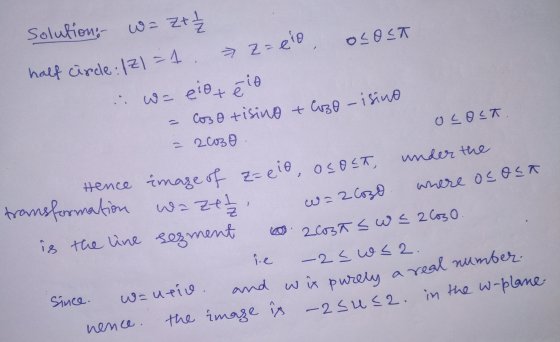 Solution:- w = z + 1/z
half circle: |z| = 1. ⇒ z = e^{iθ}, 0 ≤ θ ≤ π
∴ w = e^{iθ} + e^{-iθ}
= Cosθ + i sinθ + Cosθ - i sinθ
= 2Cosθ. 0 ≤ θ ≤ π.
Hence image of z = e^{iθ}, 0 ≤ θ ≤ π, under the
transformation w = z + 1/z, w = 2Cosθ where 0 ≤ θ ≤ π
is the line segment 2Cosπ ≤ w ≤ 2Cos0.
i.e -2 ≤ w ≤ 2.
Since. w = u + iv. and w is purely a real number.
hence. the image is -2 ≤ u ≤ 2. in the w-plane.